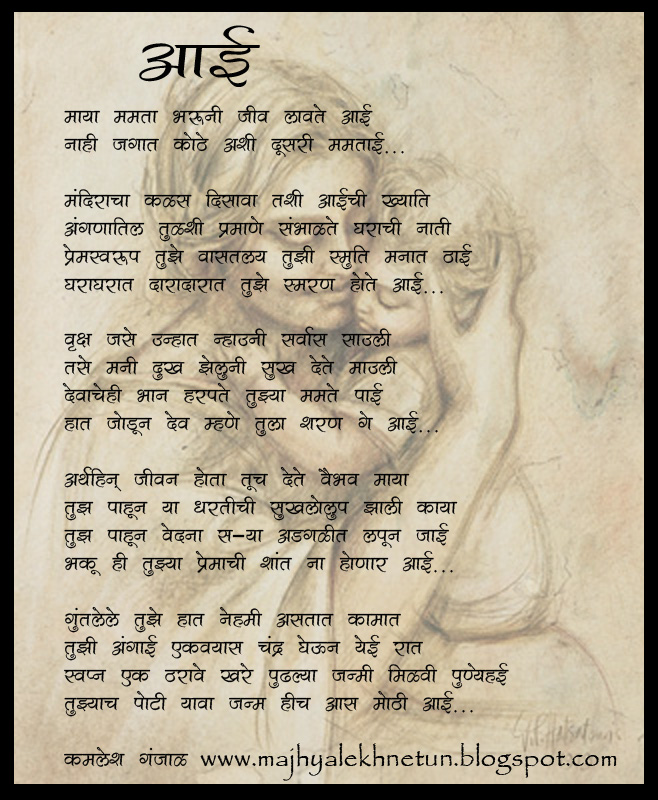 आई
माया ममता भरूनी जीव लावते आई
नाही जगात कोठे अशी दूसरी ममताई...
मंदिराचा कळस दिसावा तशी आईची ख्याति
अंगणातिल तुळशी प्रमाणे संभाळते घराची नाती
प्रेमस्वरूप तुझे वासतलय तुझी स्मुति मनात ठाई
घराघरात दारादारात तुझे स्मरण होते आई...
वृक्ष जसे उन्हात न्हाउनी सर्वास साउली
तसे मनी दुख झेलुनी सुख देते माउली
देवाचेही भान हरपते तुझ्या ममते पाई
हात जोडून देव म्हणे तुला शरण गे आई...
अर्थहिन् जीवन होता तूच देते वैभव माया
तुझ पाहून या धरतीची सुखलोलुप झाली काया
तुझ पाहून वेदना स-या अडगळीत लपून जाई
भकू ही तुझ्या प्रेमाची शांत ना होणार आई...
गुंतलेले तुझे हात नेहमी असतात कामात
तुझी अंगाई एकवयास चंद्र घेऊन येई रात
स्वप्न एक ठरावे खरे पुढल्या जन्मी मिळवी पुण्येहई
तुझ्याच पोटी यावा जन्म हीच आस मोठी आई...
कमलेश गंजाळ www.majhyalekhnetun.blogspot.com